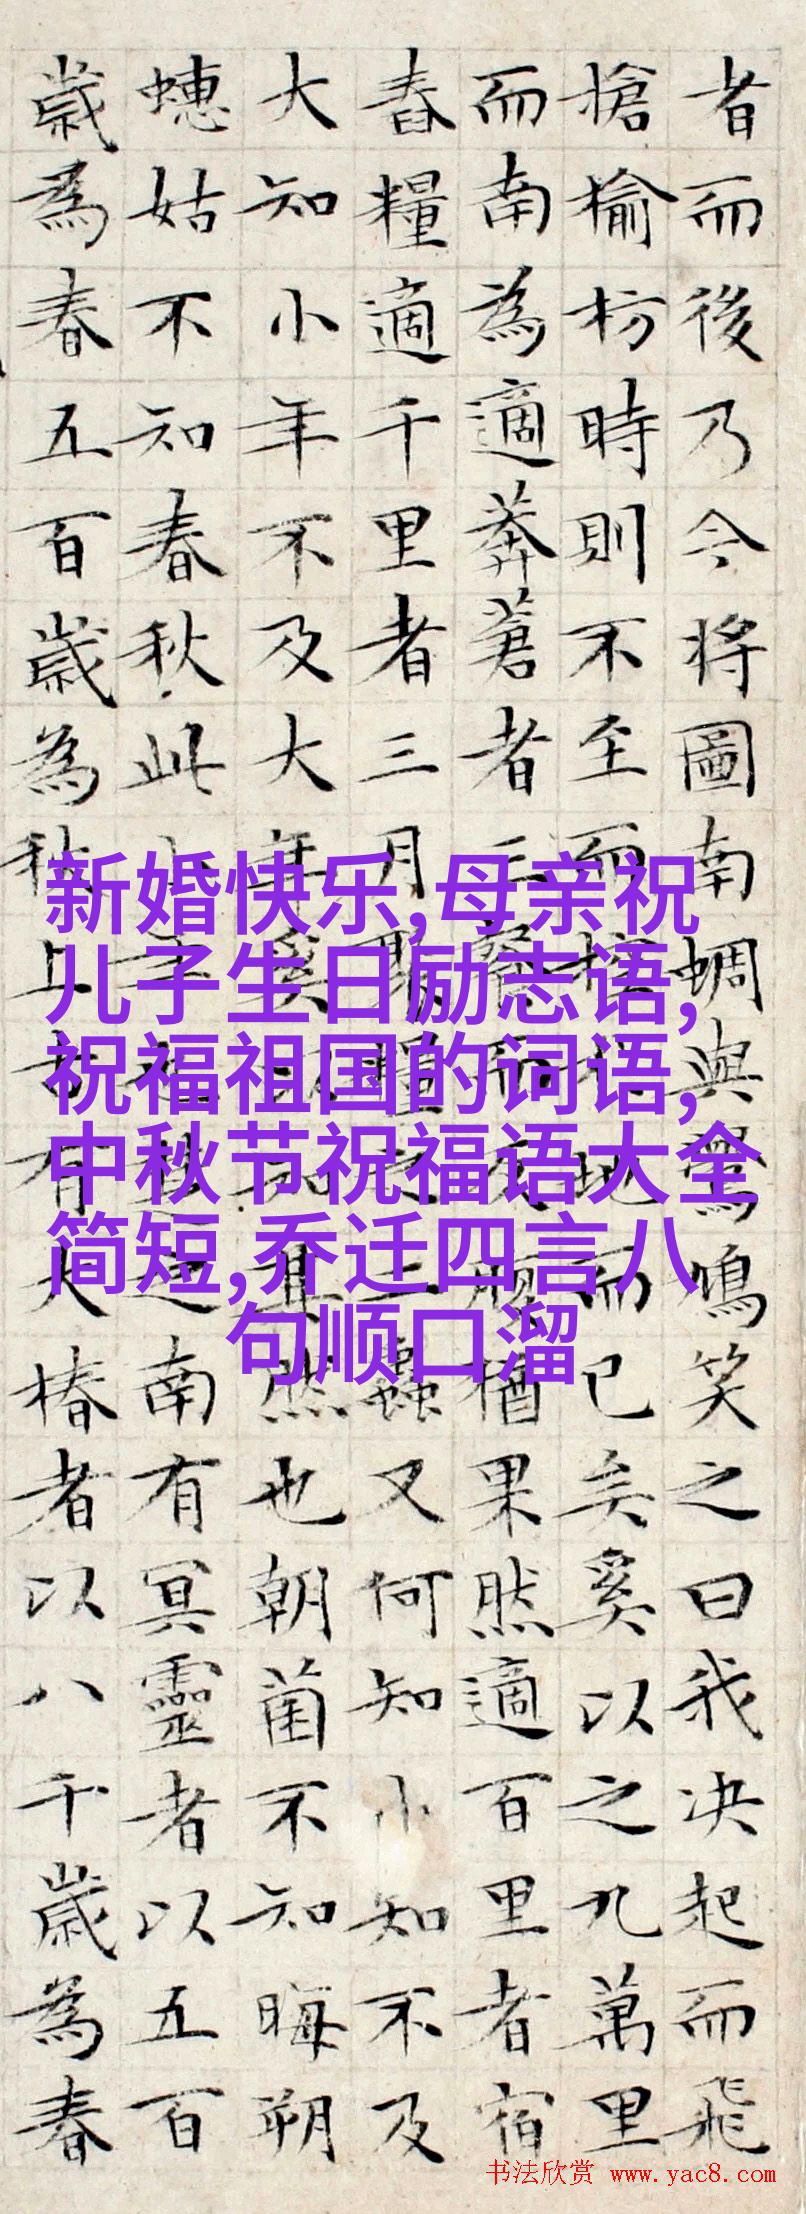 者而後乃今將圖南蜩與鷽鳴笑之曰我决起而飛
槍榆枋時則不至而控於地而已矣奚以之九萬里
而南為適莽蒼者三而反腹猶果然適百里者宿
舂糧適千里者三月聚糧之二蟲又何知小知不及
大知小年不及大年奚以知其然也朝菌不知晦朔
蟪姑不知春秋此小年也楚之南有冥靈者以五百
歲為春五百歲為秋上古有大椿者以八千歲為春
新婚快乐,母亲祝
儿子生日励志语,
祝福祖国的词语,
中秋节祝福语大全
简短,乔迁四言八
句顺口溜
书法欣赏 www.yac8.com